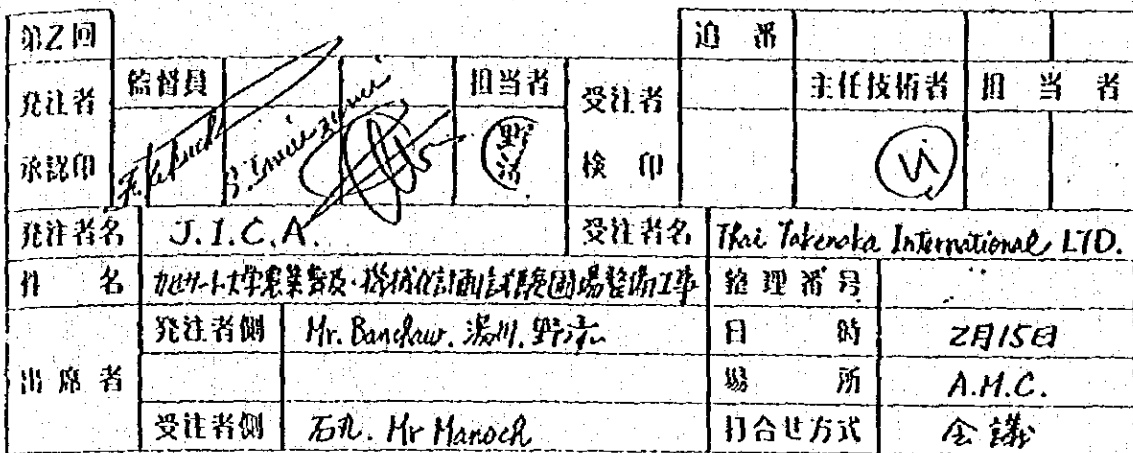 第2回 追番
発注者 承認印 監督員 担当者 受注者 検印 主任技術者 担当者
野添
発注者名 J.I.C.A. 受注者名 Thai Takenaka International LTD.
件名 カセサート大学農業普及・機械化計画試験圃場整備工事 整理番号
出席者 発注者側 Mr. Banchaw. 湯川. 野添 日時 2月15日
場所 A.M.C.
受注者側 石丸. Mr Manoch 打合せ方式 会議